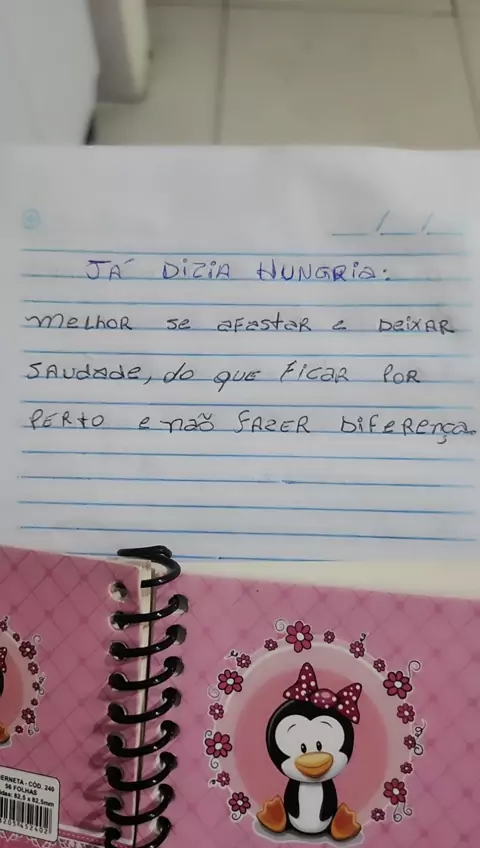 JÁ DIZIA HUNGRIA:
melHOR se afastar e DeixAR
SAUdade, do QUE FICAR POR
PERTO e não FAZER DIFeRença.
ERNETA - CÓD. 240
56 FOLHAS
82,5 x 82,5mm